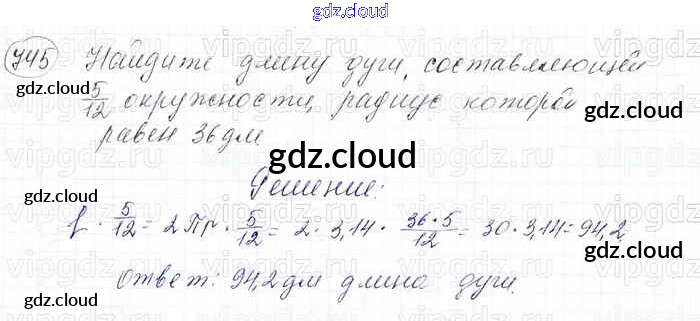 gdz.cloud
745 Найдите длину дуги, составляющей
gdz.cloud
5/12 окружности, радиус которой
gdz.cloud
равен 36 дм
gdz.cloud
gdz.cloud
Решение:
ℓ · 5/12 = 2Пr · 5/12 = 2 · 3,14 · 36·5/12 = 30 · 3,14 = 94,2
gdz.cloud
gdz.cloud
ответ: 94,2 дм длина дуги.
gdz.cloud
gdz.cloud